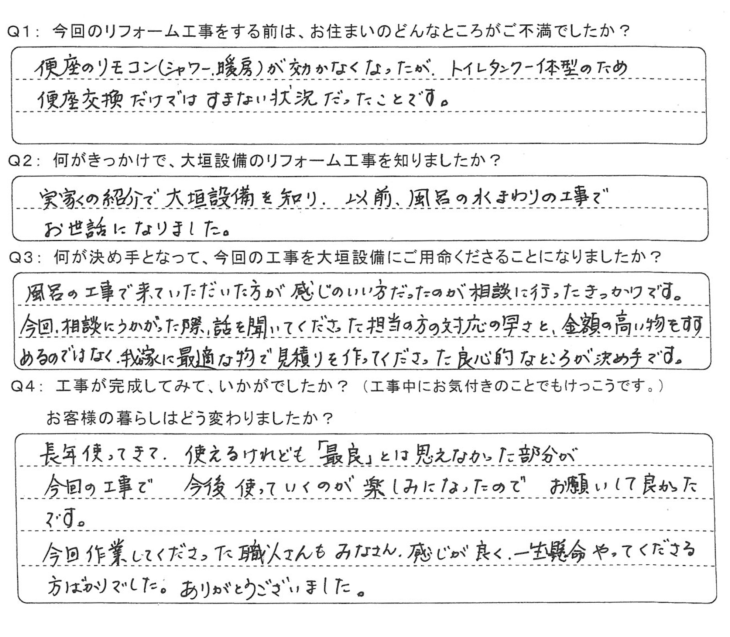 Q1: 今回のリフォーム工事をする前は、お住まいのどんなところがご不満でしたか？
便座のリモコン(シャワー、暖房)が効かなくなったが、トイレタンク一体型のため
便座交換だけではすまない状況だったことです。
Q2: 何がきっかけで、大垣設備のリフォーム工事を知りましたか？
実家の紹介で大垣設備を知り、以前、風呂の水まわりの工事で
お世話になりました。
Q3: 何が決め手となって、今回の工事を大垣設備にご用命くださることになりましたか？
風呂の工事で来ていただいた方が感じのいい方だったのが相談に行ったきっかけです。
今回、相談にうかがった際、話を聞いてくださった担当の方の対応の早さと、金額の高い物をすす
めるのではなく、我家に最適な物で見積りを作ってくださった良心的なところが決め手です。
Q4: 工事が完成してみて、いかがでしたか？（工事中にお気付きのことでもけっこうです。）
お客様の暮らしはどう変わりましたか？
長年使ってきて、使えるけれども「最良」とは思えなかった部分が
今回の工事で 今後使っていくのが楽しみになったので お願いして良かった
です。
今回作業してくださった職人さんもみなさん、感じが良く、一生懸命やってくださる
方ばかりでした。ありがとうございました。